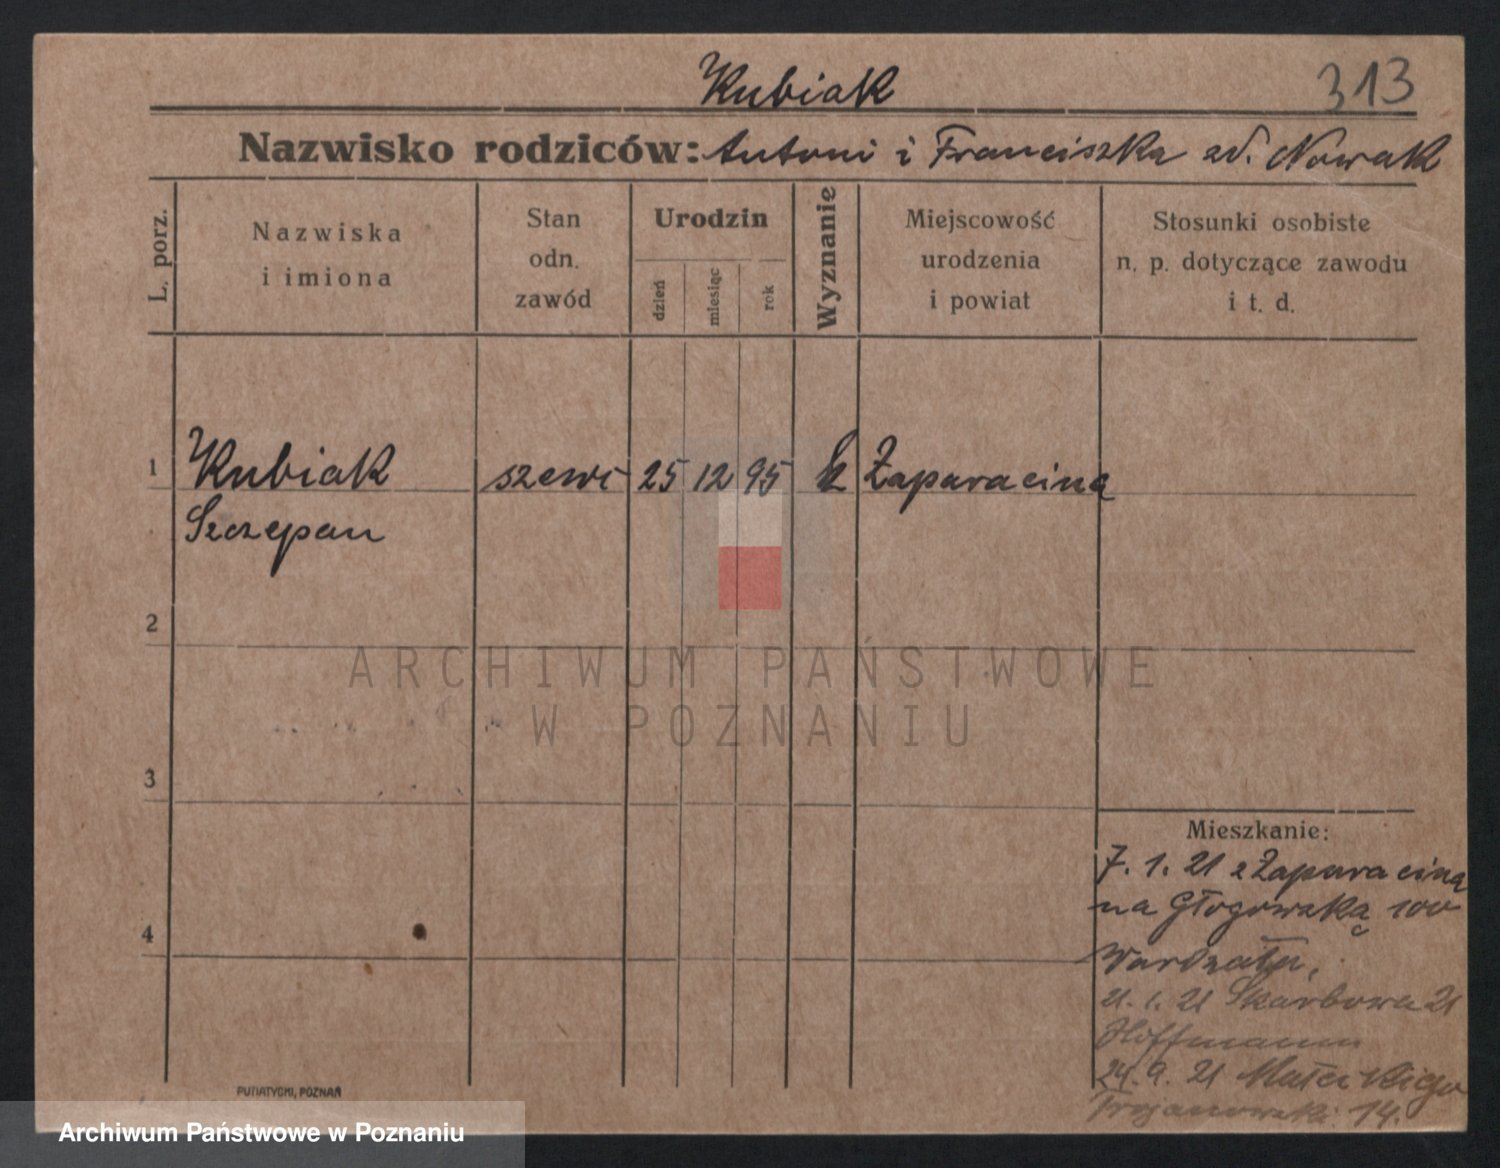 Kubiak
313
Nazwisko rodziców: Antoni i Franciszka zd. Nowak
L. porz.
Nazwiska
i imiona
Stan
odn.
zawód
Urodzin
dzień
miesiąc
rok
Wyznanie
Miejscowość
urodzenia
i powiat
Stosunki osobiste
n. p. dotyczące zawodu
i t. d.
1 Kubiak szewc 25 12 95 k Zaparacina
Szczepan
2
3
4
ARCHIWUM PAŃSTWOWE
W POZNANIU
Mieszkanie:
7. 1. 21 z Zaparacina
na Głogowską 100
21. 1. 21 Skarbowa 21
Hoffmann
24. 9. 21 Matejkiego
Trojanowski 14.
PUTIATYCKI, POZNAŃ
Archiwum Państwowe w Poznaniu